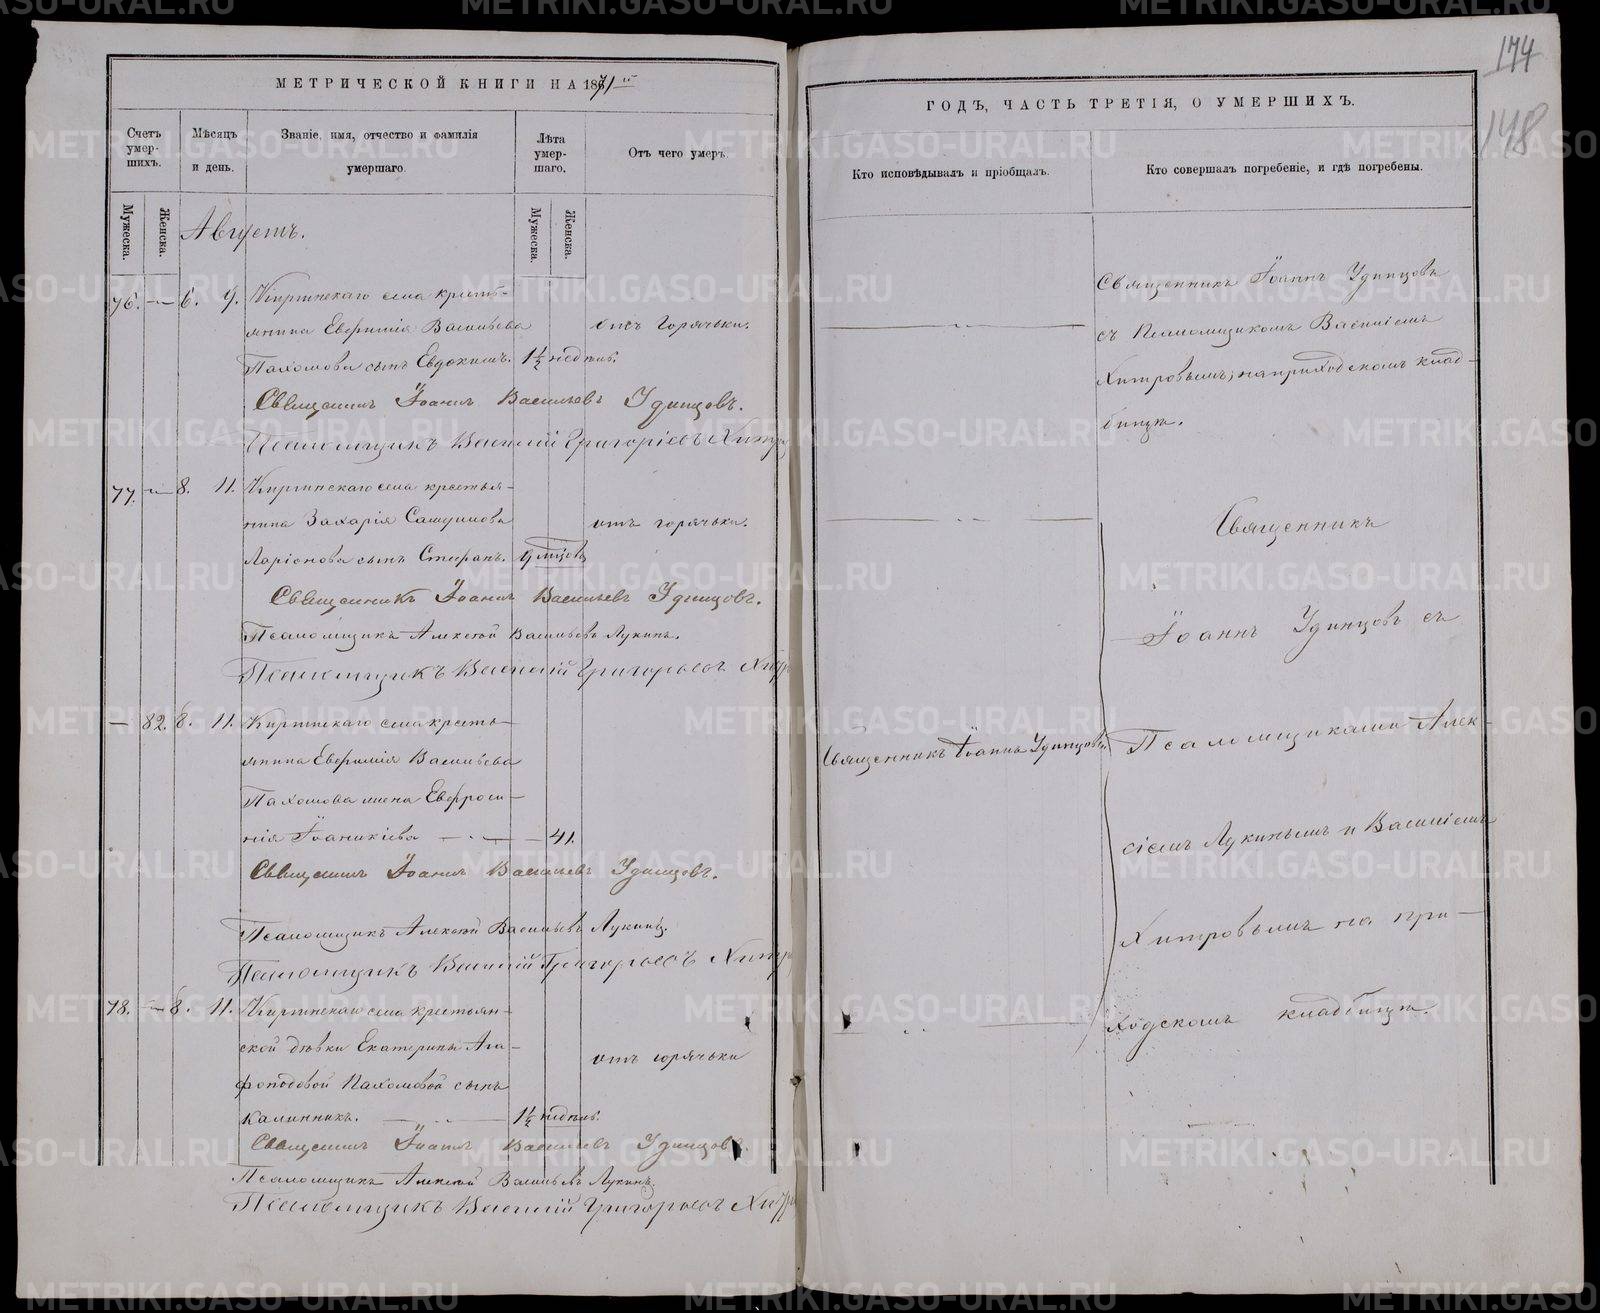 МЕТРИЧЕСКОЙ КНИГИ НА 1871
Счетъ умершихъ.
Мѣсяцъ и день.
Званіе, имя, отчество и фамилія умершаго.
Лѣта умершаго.
Отъ чего умеръ.
Мужеска.
Женска.
Мужеска.
Женска.
Августъ.
76. — 6. 9. Киргинскаго села кресть-
янина Евфимія Васильева
отъ горячки.
Пахомова сынъ Евдокимъ. 1½ недѣль.
Священникъ Іоаннъ Васильевъ Удинцовъ.
Псаломщикъ Василій Григорьевъ
77. — 8. 11. Киргинскаго села крестья-
нина Захарія
отъ горячки.
Ларіонова сынъ Стефанъ. 9 мѣсцовъ
Священникъ Іоаннъ Васильевъ Удинцовъ.
Псаломщикъ Алексѣй Васильевъ Лукинъ.
Псаломщикъ Василій Григорьевъ
— 82. 8. 11. Киргинскаго села кресть-
янина Евфимія Васильева
Пахомова жена Евфроси-
нія Іоаникіева — 41.
Священникъ Іоаннъ Васильевъ Удинцовъ.
Псаломщикъ Алексѣй Васильевъ Лукинъ.
Псаломщикъ Василій Григорьевъ
78. — 8. 11. Киргинскаго села крестьян-
ской дѣвки Екатерины Ага-
отъ горячки
фоподовой Пахомовой сынъ
Калинникъ. — 1½ недѣль.
Священникъ Іоаннъ Васильевъ Удинцовъ.
Псаломщикъ Алексѣй Васильевъ Лукинъ.
Псаломщикъ Василій Григорьевъ
174
148
ГОДЪ, ЧАСТЬ ТРЕТІЯ, О УМЕРШИХЪ.
Кто исповѣдывалъ и пріобщалъ.
Кто совершалъ погребеніе, и гдѣ погребены.
Священникъ Іоаннъ Удинцовъ
съ Псаломщикомъ Василіемъ
Хитровымъ, на приходскомъ клад-
бищѣ.
Священникъ
Іоаннъ Удинцовъ съ
Священникъ Іоаннъ Удинцовъ.
Псаломщиками Алек-
сіемъ Лукинымъ и Василіемъ
Хитровымъ на при-
ходскомъ кладбищѣ.
METRIKI.GASO-URAL.RU